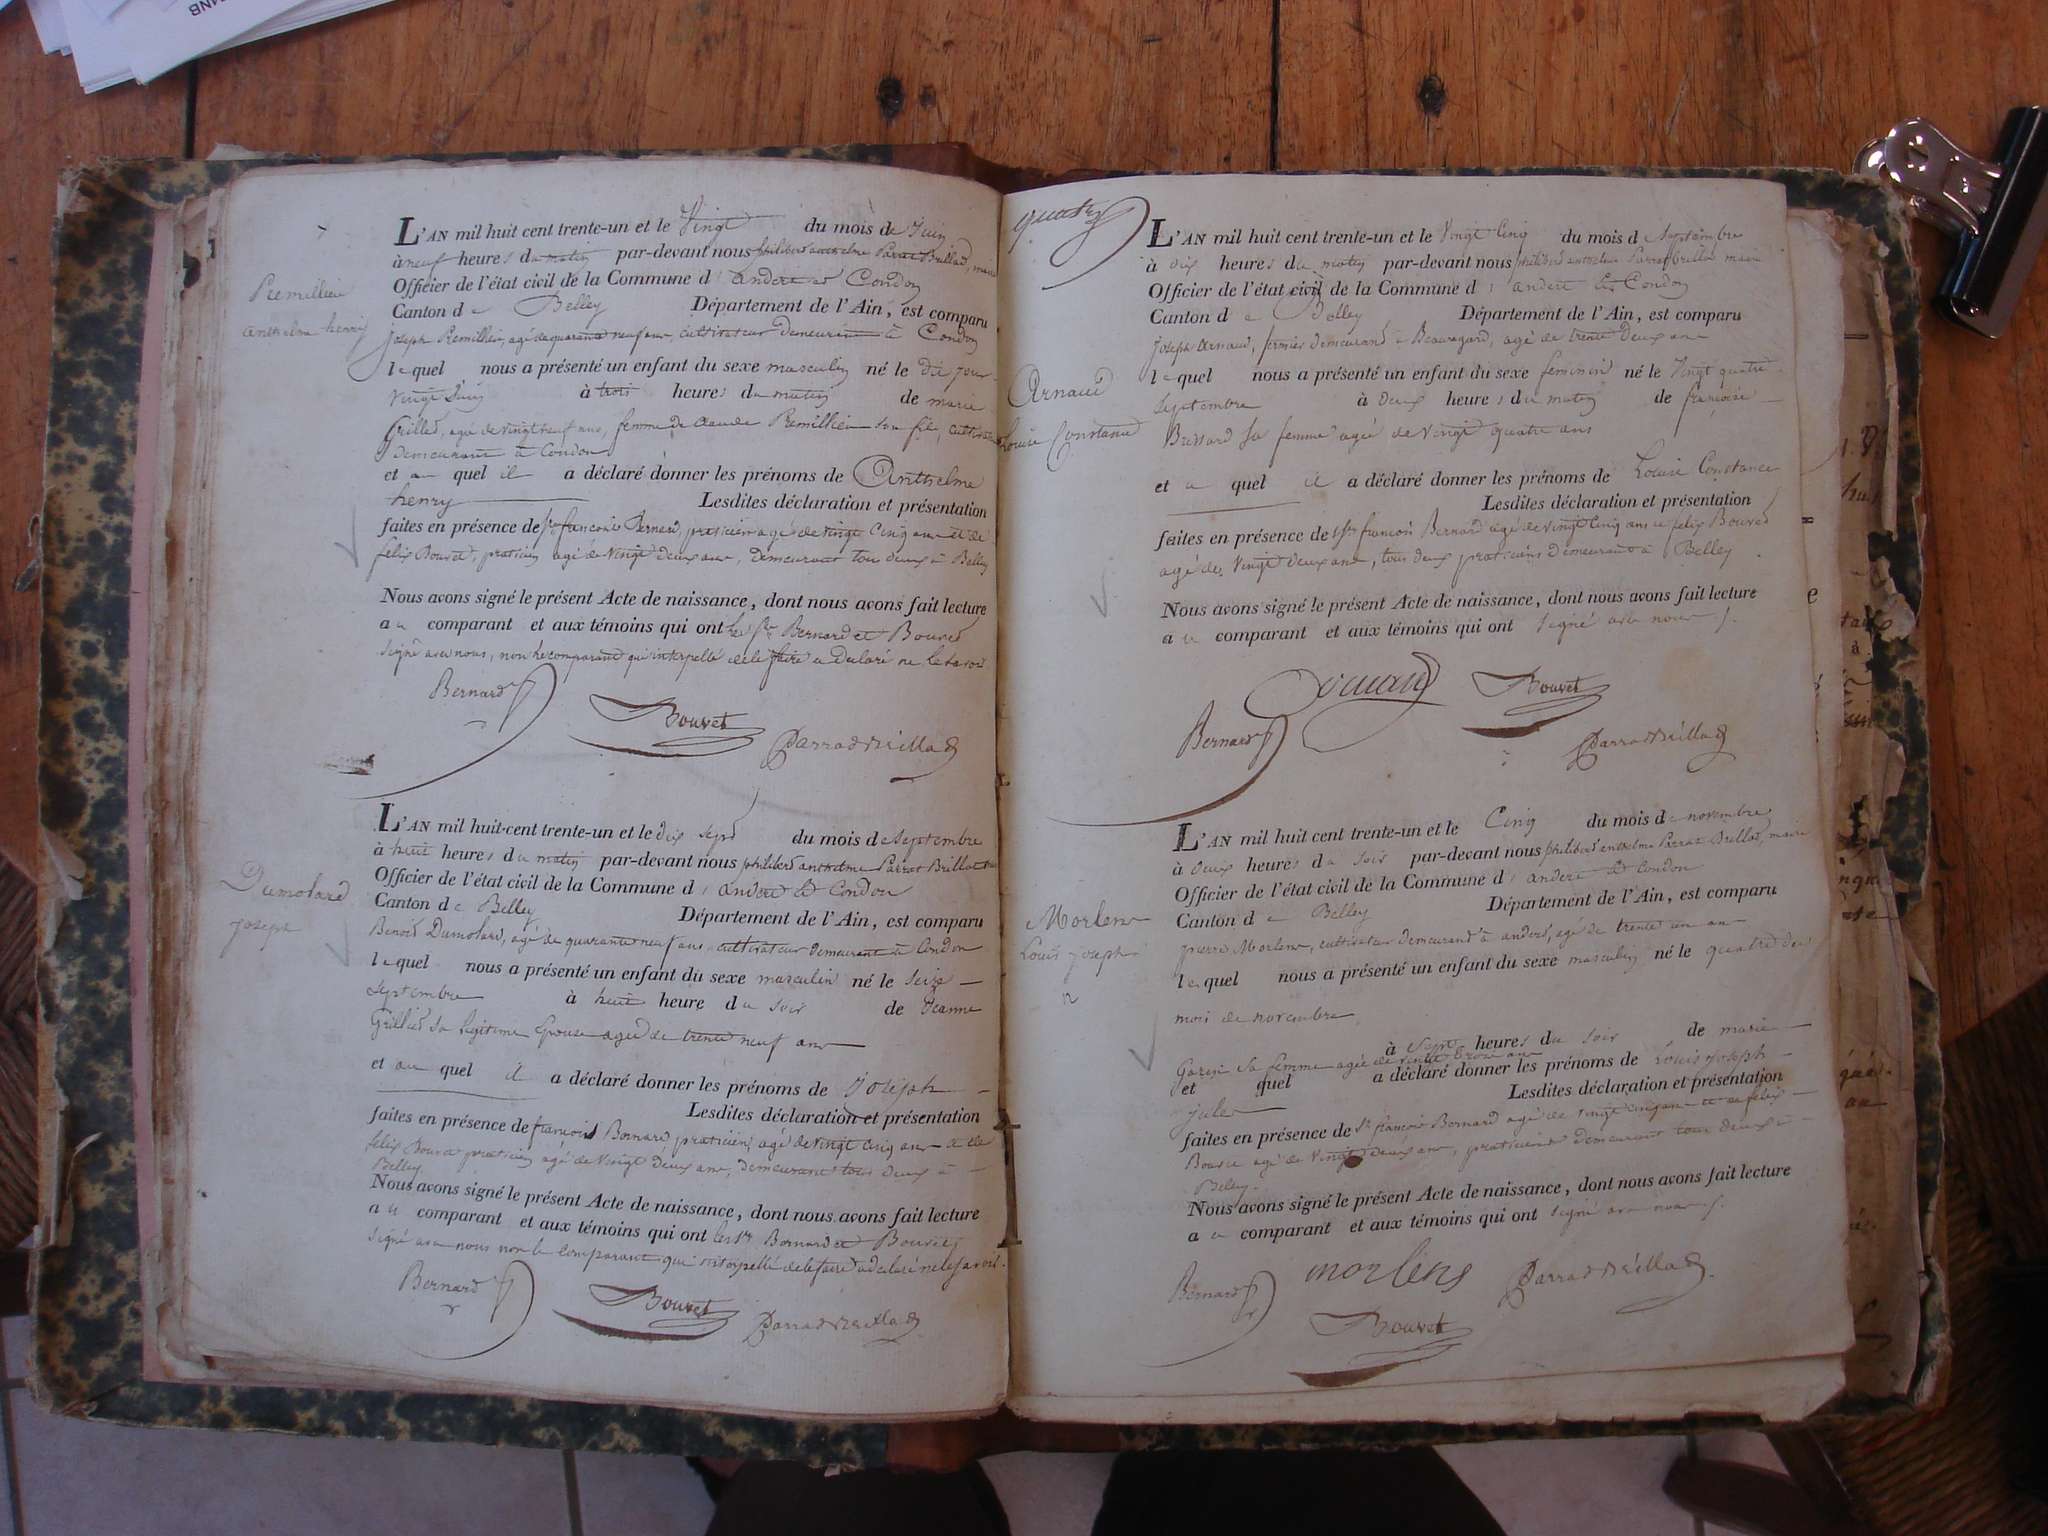 Premillieu
anthelme henry
L'AN mil huit cent trente-un et le Vingt du mois de Juin
à neuf heures du matin par-devant nous philibert anthelme Parrat Brillat, maire
Officier de l'état civil de la Commune d' andert et Condon
Canton de Belley Département de l'Ain, est comparu
joseph Premillieu, agé de quarante neuf ans, cultivateur demeurant à Condon
lequel nous a présenté un enfant du sexe masculin né le dit jour
Vingt Juin à trois heures du matin de marie
Grillet, agé de vingt neuf ans, femme de claude Premillieu son fils, cultivateur
demeurant à Condon
et au quel il a déclaré donner les prénoms de Anthelme
henry Lesdites déclaration et présentation
faites en présence de françois Bernard, praticien agé de vingt Cinq ans et de
felix Bouvet, praticien agé de vingt deux ans, demeurant tous deux à Belley
Nous avons signé le présent Acte de naissance, dont nous avons fait lecture
au comparant et aux témoins qui ont les Srs Bernard et Bouvet
signé avec nous, non le comparant qui interpellé de le faire a déclaré ne le savoir
Bernard
Bouvet
Parrat Brillat
Dumolard
joseph
L'AN mil huit-cent trente-un et le dix sept du mois de Septembre
à huit heures du matin par-devant nous philibert anthelme Parrat Brillat
Officier de l'état civil de la Commune d' andert et Condon
Canton de Belley Département de l'Ain, est comparu
Benoit Dumolard, agé de quarante neuf ans, cultivateur demeurant à Condon
lequel nous a présenté un enfant du sexe masculin né le seize
septembre à huit heure du soir de Jeanne
Grillet sa légitime Epouse agée de trente neuf ans
et au quel il a déclaré donner les prénoms de Joseph
Lesdites déclaration et présentation
faites en présence de françois Bernard praticien, agé de vingt cinq ans et de
felix Bouvet praticien agé de vingt deux ans, demeurant tous deux à
Belley
Nous avons signé le présent Acte de naissance, dont nous avons fait lecture
au comparant et aux témoins qui ont les Srs Bernard et Bouvet
signé avec nous non le comparant qui interpellé de le faire a déclaré ne le savoir.
Bernard
Bouvet
Parrat Brillat
quatre
Arnaud
Louise Constance
L'AN mil huit cent trente-un et le Vingt Cinq du mois d Septembre
à dix heures du matin par-devant nous philibert anthelme Parrat Brillat maire
Officier de l'état civil de la Commune d' andert et Condon
Canton de Belley Département de l'Ain, est comparu
Joseph Arnaud, fermier demeurant à Beauregard, agé de trente Deux ans
lequel nous a présenté un enfant du sexe feminin né le Vingt quatre
septembre à deux heures du matin de françoise
sa femme agée de vingt quatre ans
et a quel il a déclaré donner les prénoms de Louise Constance
Lesdites déclaration et présentation
faites en présence de françois Bernard agé de vingt Cinq ans et felix Bouvet
agé de Vingt deux ans, tous deux praticiens demeurant à Belley
Nous avons signé le présent Acte de naissance, dont nous avons fait lecture
au comparant et aux témoins qui ont signé avec nous
Bernard
Bouvet
Parrat Brillat
Morlens
Louis joseph
L'AN mil huit cent trente-un et le Cinq du mois de novembre
à deux heures du soir par-devant nous philibert anthelme Parrat Brillat, maire
Officier de l'état civil de la Commune d' andert et Condon
Canton de Belley Département de l'Ain, est comparu
pierre Morlens, cultivateur demeurant à andert, agé de trente un an
lequel nous a présenté un enfant du sexe masculin né le quatre du
mois de novembre
à sept heures du soir de marie
sa femme agée de trente trois ans
et quel a déclaré donner les prénoms de Louis Joseph
Jules Lesdites déclaration et présentation
faites en présence de Sr françois Bernard agé de vingt cinq ans et de felix
Bouvet agé de vingt deux ans, praticiens demeurant tous deux à
Belley
Nous avons signé le présent Acte de naissance, dont nous avons fait lecture
au comparant et aux témoins qui ont signé avec nous
Bernard
morlens
Parrat Brillat
Bouvet